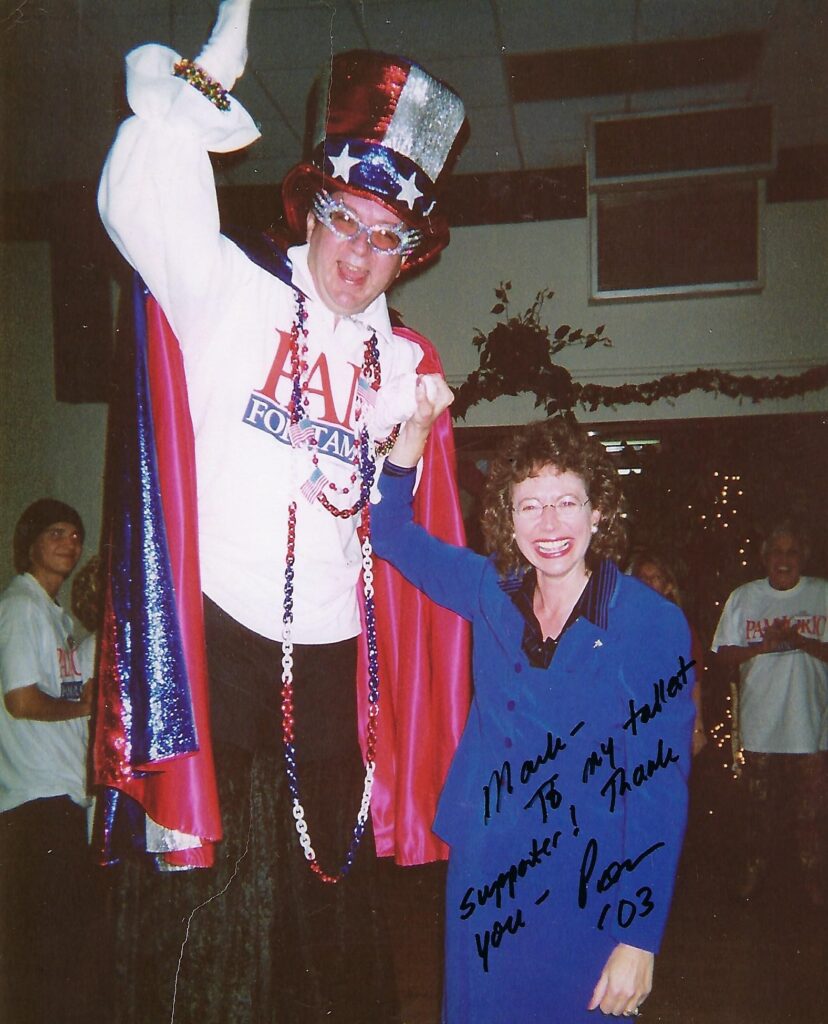 PAM
FOR TAM
PAM IORIO
Mark-
To my tallest
supporter! Thank
you- Pam
'03